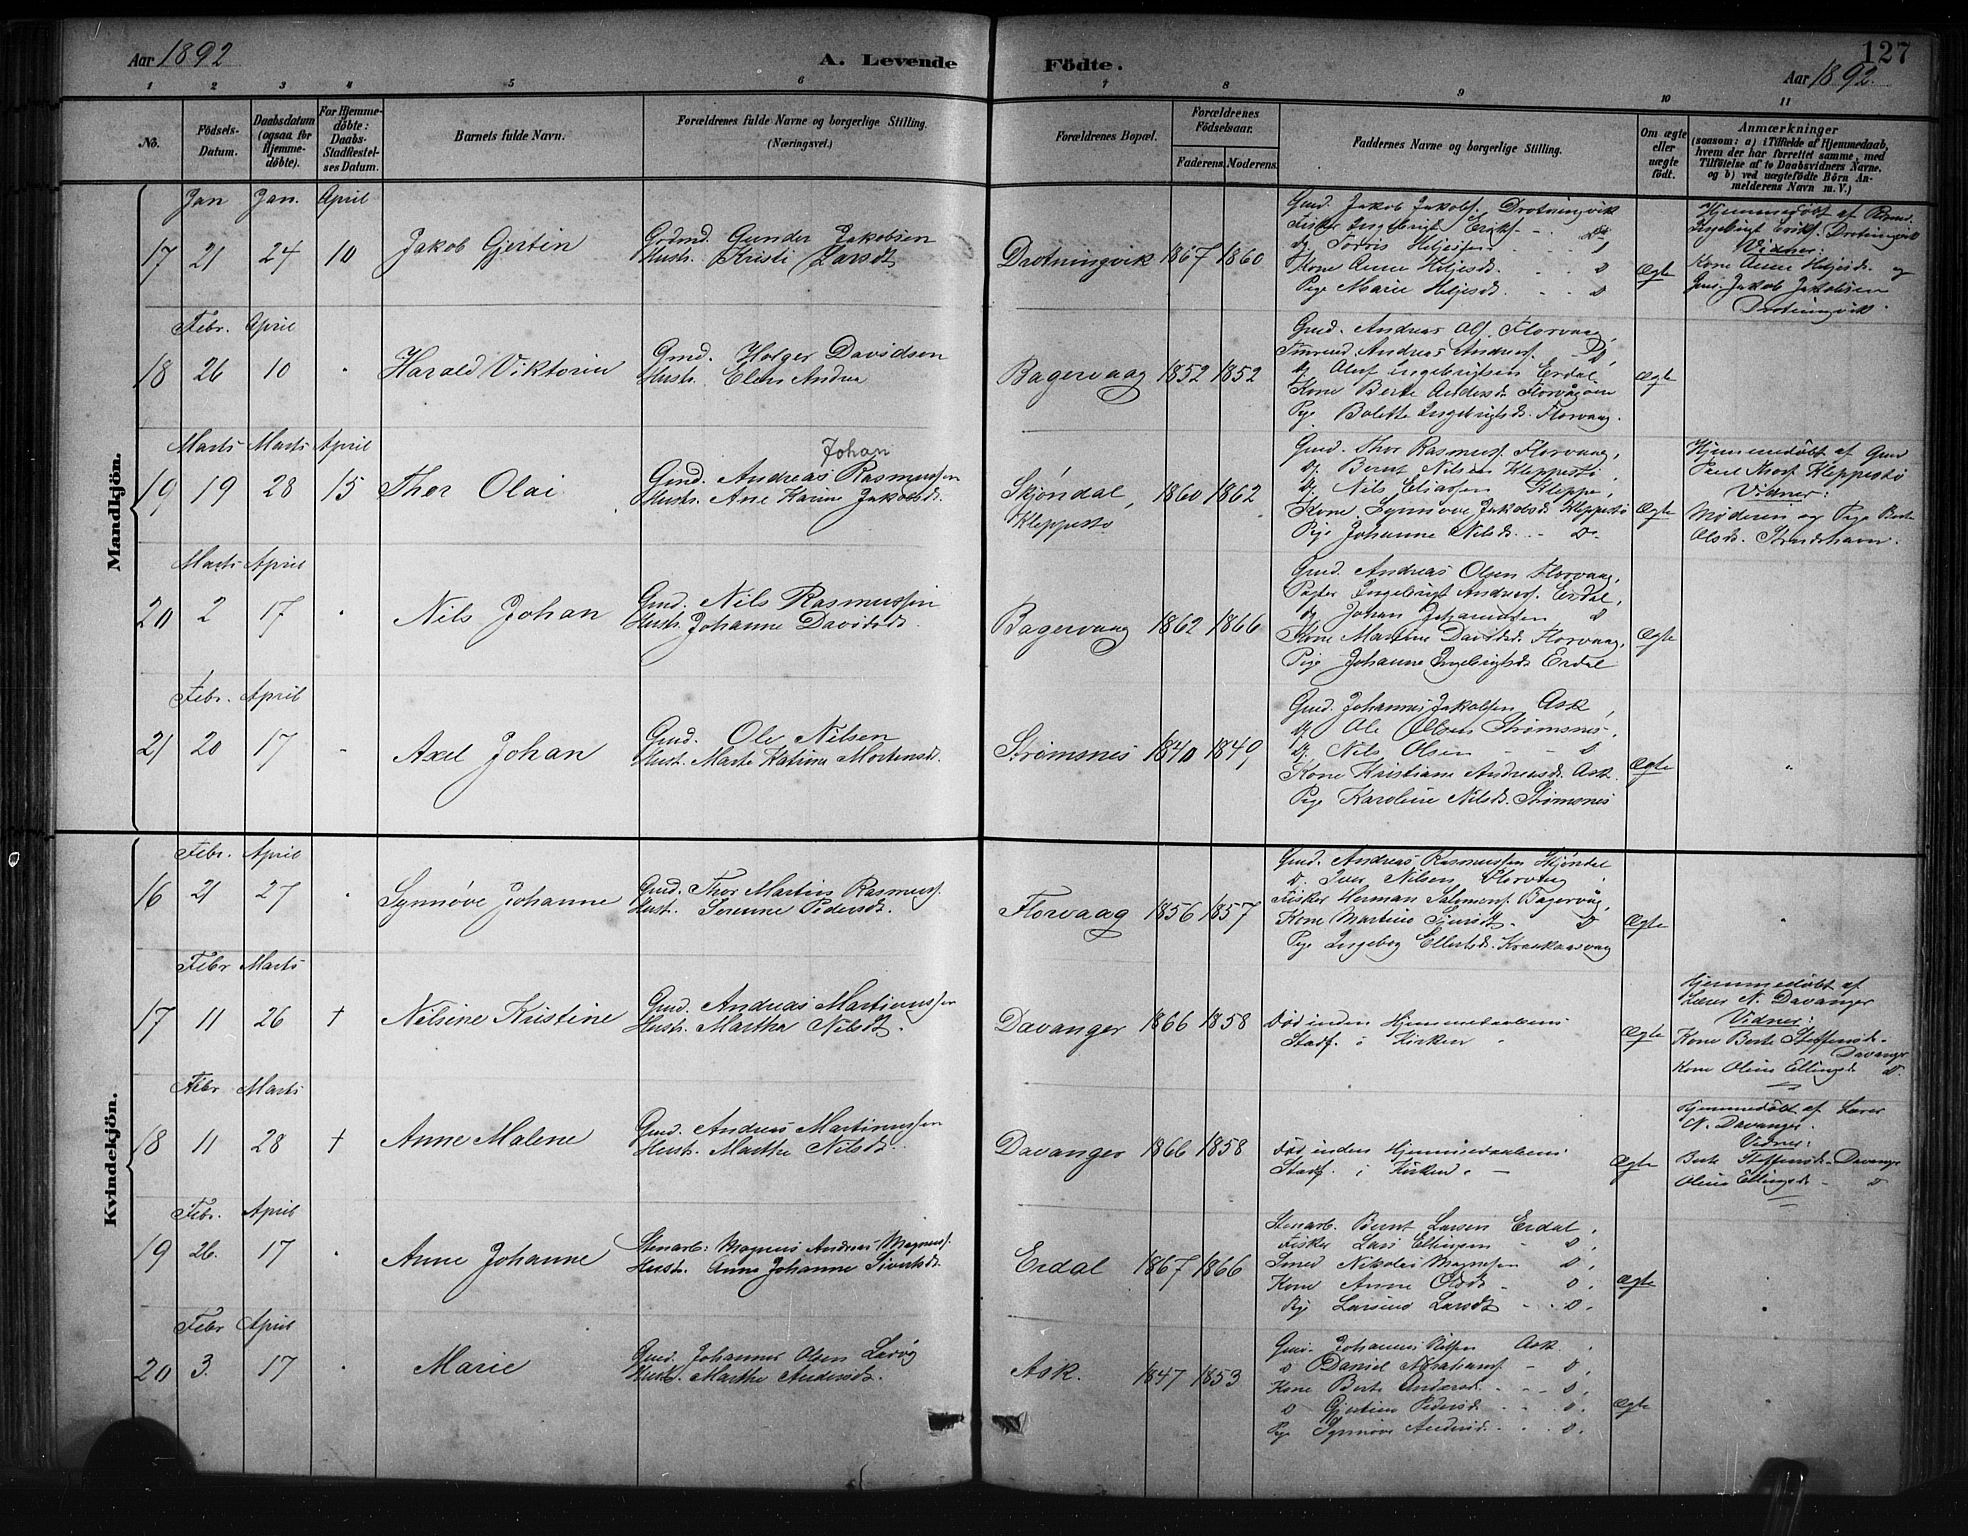 127
Aar 1892
A. Levende Födte.
Aar 1892.
1 2 3 4 5 6 7 8 9 10 11
No.
Födsels-Datum.
Daabsdatum (ogsaa for Hjemmedöbte).
For Hjemmedöbte: Daabs-Stadfæstelses Datum.
Barnets fulde Navn.
Forældrenes fulde Navne og borgerlige Stilling. (Næringsvei.)
Forældrenes Bopæl.
Forældrenes Födselsaar.
Faderens. Moderens.
Faddernes Navne og borgerlige Stilling.
Om ægte eller uægte födt.
Anmærkninger
(saasom: a) i Tilfælde af Hjemmedaab, hvem der har forrettet samme, med Tilföielse af to Daabsvidners Navne, og b) ved uægtefödte Börn Anmelderens Navn m. V.)
Mandkjön.
Jan Jan. April
17 21 24 10 Jakob Gjertin
Gunder Jakobsen
Hustr. Kristi Larsdt
Drotningvik 1867 1860
Gmd. Jakob Jakobs. Drotningvik
Fisker Ingebrigt Eriks. - D
Kone Anne Heljesd. - D
Pige Marie Heljesd. - D
Ægte
Hjemmedøbt af
Ingebrigt Eriks. Drotningvik
Vidner:
Kone Anne Heljesd. og
Jakob Jakobsen
Drotningvik.
Febr. April
18 26 10 " Harald Viktorin
Gmd. Holger Davidsen
Hustr. Elen Andrea
Bagervaag 1852 1852
Gmd. Andreas Ols. Florvaag,
Andreas Anders. D,
Oluf Ingebrigtsen Erdal,
Kone Berte Andersd. Florvågøen
Pige Bolette Ingebrigtsd. Florvaag.
Ægte
Marts Marts April
19 19 28 15 Thor Olai
Johan
Gmd. Andreas Rasmussen
Hustr. Ane Karine Jakobsd.
Skjøndal, Kleppestø
1860 1862
Gmd. Thor Rasmuss. Florvaag,
Dj. Bernt Nilsen Kleppestø,
Dj. Nils Eliassen Kleppe,
Kone Synnøve Jakobsd. Kleppestø
Pige Johanne Nilsd. - D.
Ægte
Hjemmedøbt af Gmd
Kleppestø
Vidner:
Moderen og Pige Berte
Olsd.
Marts April
20 2 17 " Nils Johan
Gmd. Nils Rasmussen
Hustr. Johanne Davidsd.
Bagervaag 1862 1866
Gmd. Andreas Olsen Florvaag,
Ingebrigt Anders. Erdal,
Johan Johannesen D
Kone Martine Davidsd. Florvaag,
Pige Johanne Ingebrigtsd. Erdal
Ægte
Febr. April
21 20 17 " Axel Johan
Gmd. Ole Nilsen
Hust. Marte Katrine Mortensd.
Strømsnes 1840 1849,
Gmd. Johannes Jakobsen Ask,
Dj. Ole Olsen Strømsnes.
Dj. Nils Olsen - - D
Kone Kristiane Andreasd. Ask.
Pige Karoline Nilsd. Strømsnes
Ægte "
Kvindekjön.
Febr. April
16 21 27 " Synnøve Johanne
Gmd. Thor Martin Rasmuss.
Hust. Serenne Pedersdt.
Florvaag 1856 1857
Gmd. Andreas Rasmussen Skjøndal
D. Iver Nilsen Florvaag
Fisker Herman Salomons. Bagervåg,
Kone Martine Sjursdt. D
Pige Ingeborg Ellertsd.
Ægte "
Febr Marts
17 11 26 † Nilsine Kristine
Gmd. Andreas Martinussen
Hustr. Martha Nilsdt.
Davanger 1866 1858
Død inden Hjemmedaabens
Stadf. i Kirken
Ægte
Hjemmedøbt af
Lærer N. Davanger
Vidner:
Kone Berte Steffensd.
Davanger
Kone Oline Ellingsd. D.
Febr Marts
18 11 28 † Anne Malene
Gmd. Andreas Martinussen
Hustr. Marthe Nilsd.
Davanger 1866 1858
Død inden Hjemmedaabens
Stadf. i Kirken.
Ægte
Hjemmedøbt af Lærer
N. Davanger.
Vidner:
Berte Steffensd. Davanger
Oline Ellingsd. - D
Febr. April
19 26. 17 " Anne Johanne
Stenarb: Magnus Andreas Magnuss.
Hustr. Anne Johanne Sivertsdt.
Erdal 1867 1866
Stenarb. Bernt Larsen Erdal,
Fisker Lars Ellingsen - D,
Smed Nikolai Magnesen D,
Kone Anne Olsdt - D,
Pige Larsine Larsdt - D.
Ægte "
Febr April
20 3. 17 " Marie
Gmd. Johannes Olsen Lerøg
Hustr. Marthe Andersdt.
Ask. 1847 1853
Gmd. Johannes Ask.
D Daniel Abrahams. - D,
Kone Berte - D,
D Gjertine Pedersd. - D,
Pige Synnøve Andersd. - D.
Ægte "